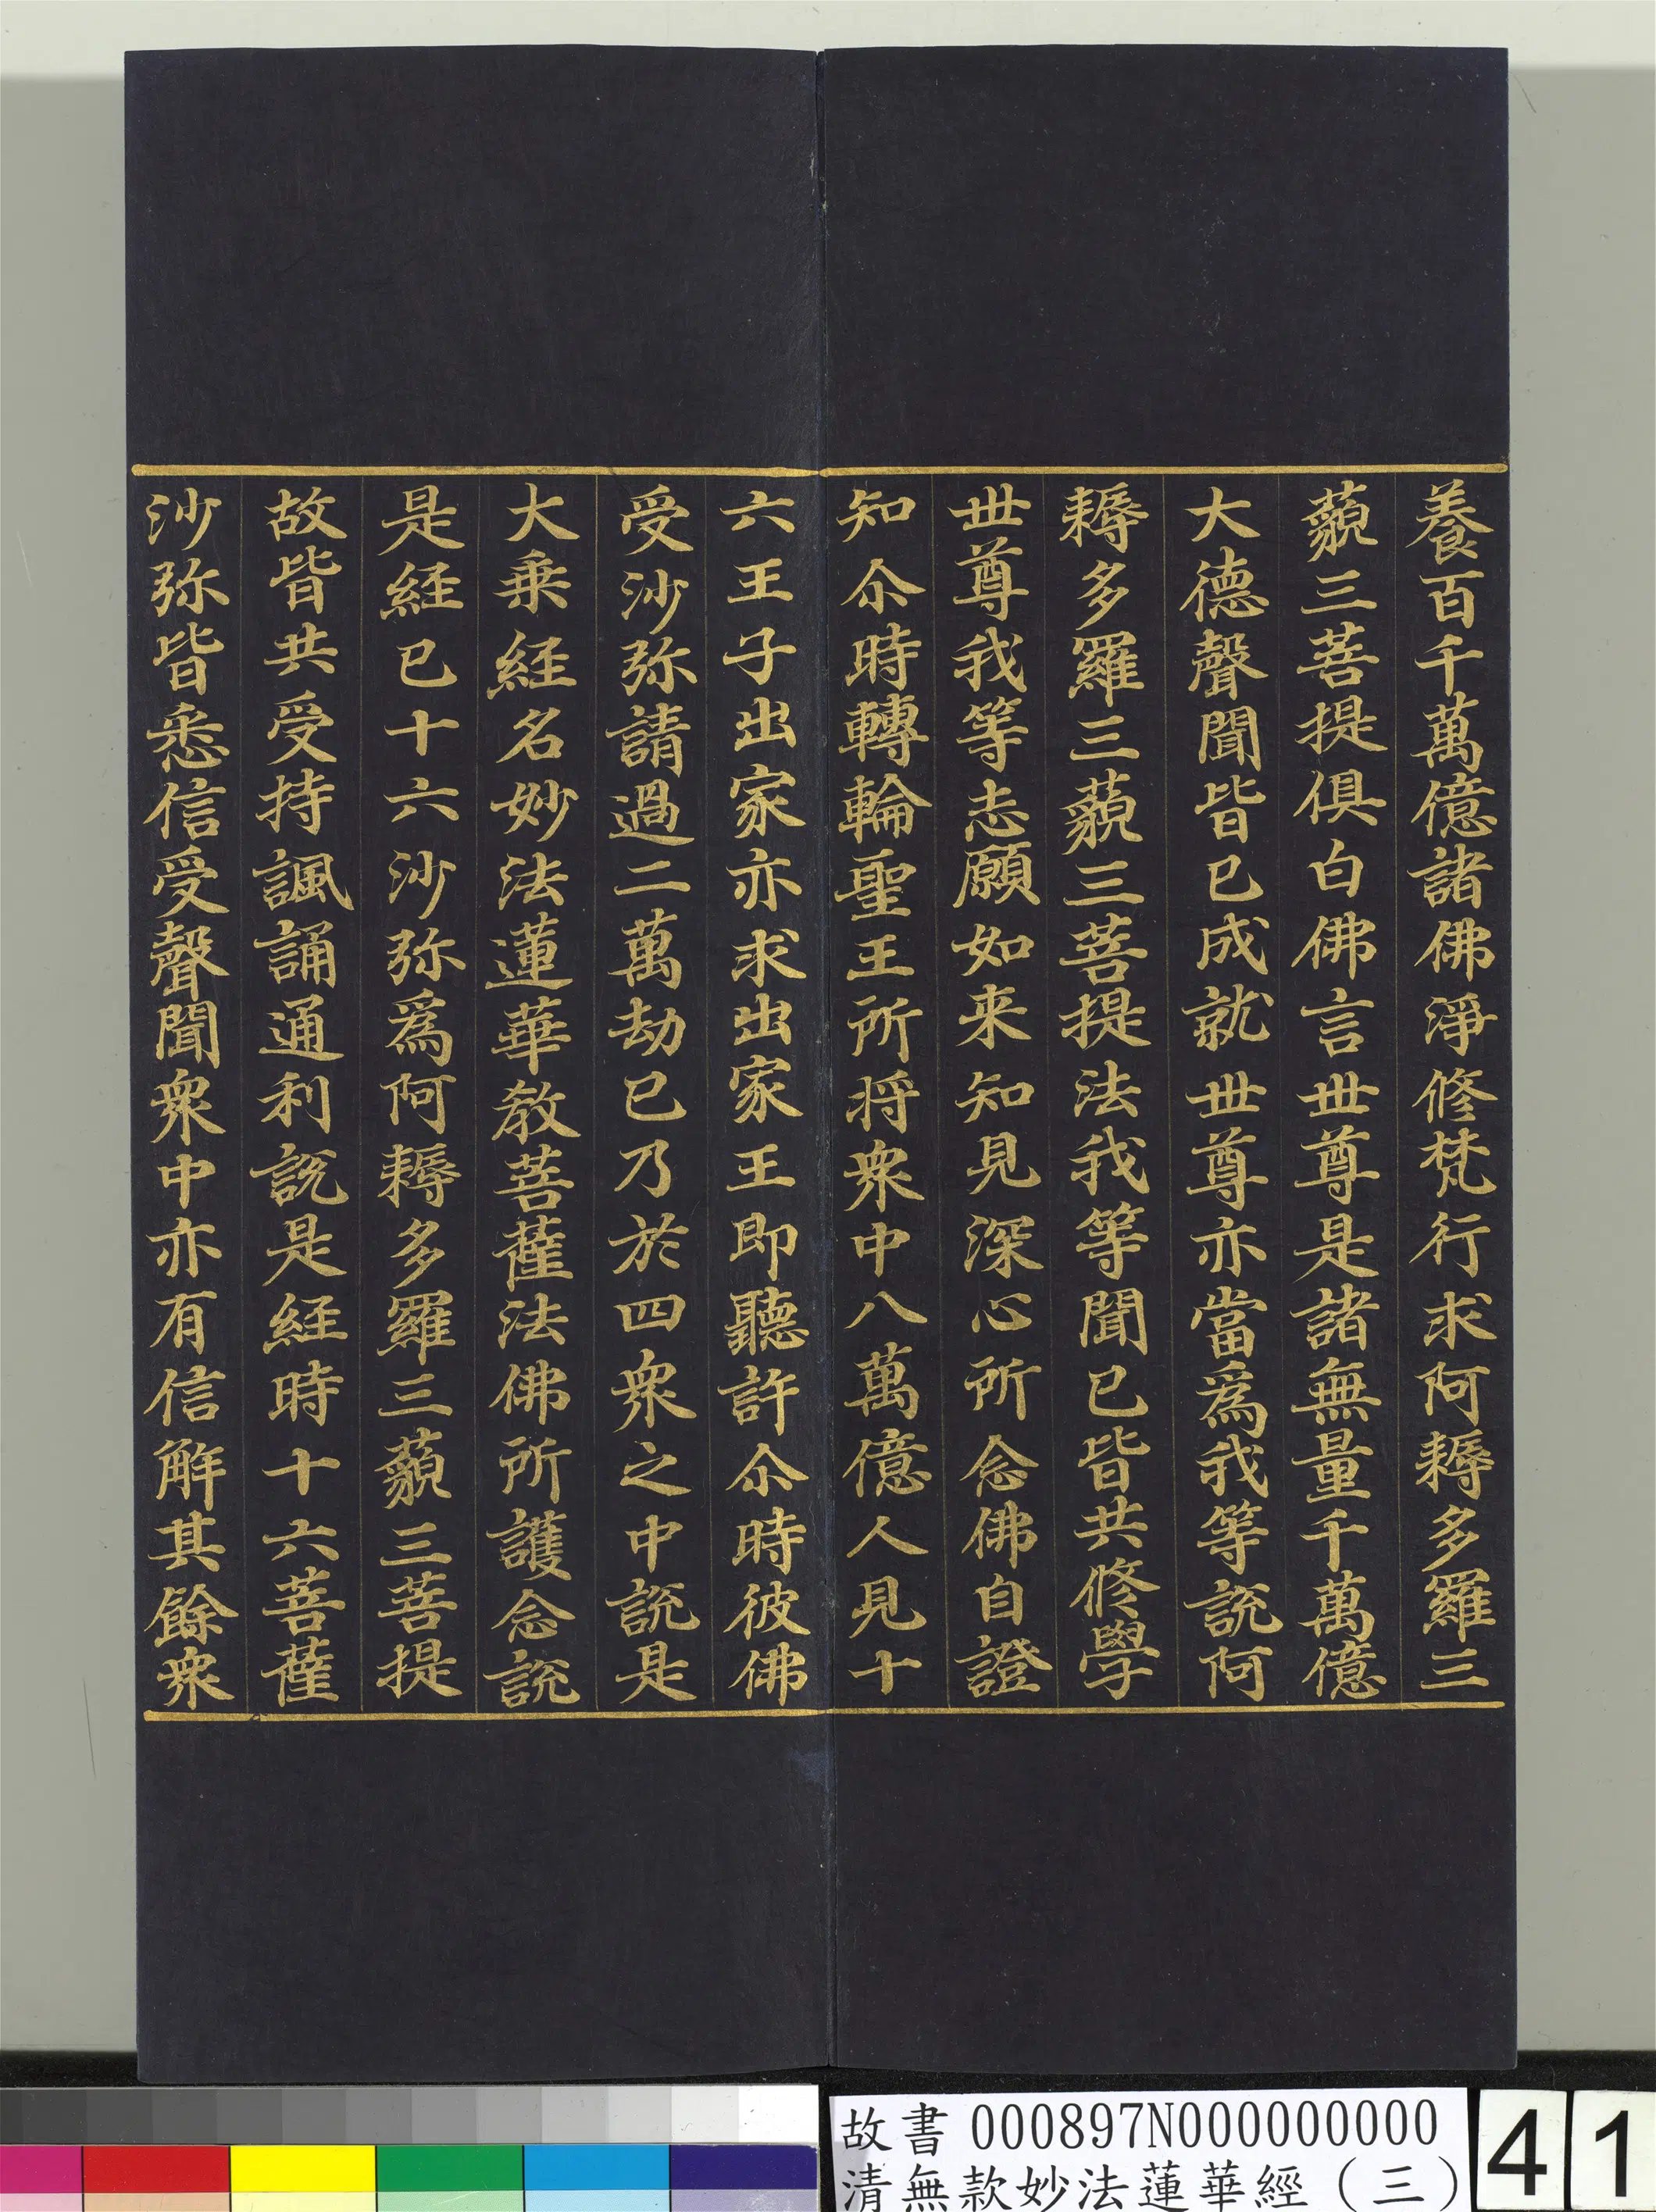 養百千萬億諸佛淨修梵行求阿耨多羅三
藐三菩提俱白佛言世尊是諸無量千萬億
大德聲聞皆已成就世尊亦當爲我等說阿
耨多羅三藐三菩提法我等聞已皆共修學
世尊我等志願如来知見深心所念佛自證
知尒時轉輪聖王所将衆中八萬億人見十
六王子出家亦求出家王即聽許尒時彼佛
受沙弥請過二萬劫已乃於四衆之中說是
大乗經名妙法蓮華教菩薩法佛所護念說
是經已十六沙弥爲阿耨多羅三藐三菩提
故皆共受持諷誦通利說是經時十六菩薩
沙弥皆悉信受聲聞衆中亦有信解其餘衆
故書 000897N000000000
清無款妙法蓮華經（三）
41